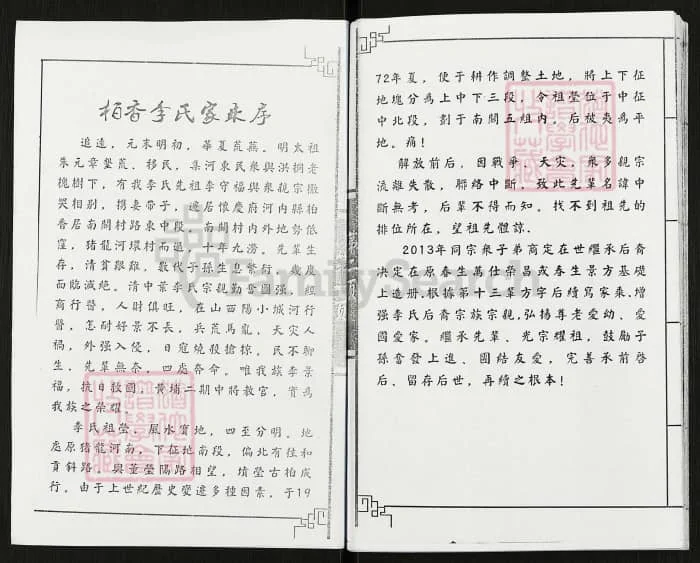 柏香李氏家乘序
追遠，元末明初，華夏荒蕪，明太祖
朱元章墾荒、移民，集河東民衆與洪桐老
槐樹下，有我李氏先祖李守福與衆親宗撒
哭相别，携妻帶子，遷居懷慶府河内縣柏
香居南關村路東中段，南關村内外地势低
窪，猪龍河環村而過，十年九澇。先輩生
存，清貧艱難，数代子孫生息繁衍，幾度
面臨滅絶。清中葉李氏宗親勤奮圖强，經
商行醫，人財俱旺，在山西陽小城河行
醫，怎耐好景不長，兵荒馬亂，天灾人
禍，外强入侵，日寇燒殺搶掠，民不聊
生，先輩無奈，四處奔命。唯我族李景
福，抗日救國，黄埔二期中將教官，實爲
我族之荣耀。
李氏祖塋，風水寳地，四至分明。地
處原猪龍河南，下征地南段，偏北有往和
貢斜路，與董塋隔路相望，墳塋古柏成
行。由于上世紀歷史變遷多種因素，于19
72年夏，便于耕作調整土地，將上下征
地塊分爲上中下三段，令祖塋位于中征
中北段，劃于南關五组内，后被夷爲平
地。痛！
解放前后，因戰爭、天灾，衆多親宗
流離失散，聯络中斷，致此先輩名諱中
斷無考，后輩不得而知。找不到祖先的
排位所在，望祖先體諒.
2013年同宗衆子弟商定在世繼承后裔
決定在原春生萬仕荣昌戎春生景方基礎
上造册.根據第十三輩方字后續寫家乘.增
强李氏后裔宗族宗親,弘揚尊老愛幼、愛
國愛家。繼承先輩、光宗耀祖，鼓勵子
孫奮發上進、團结友愛，完善承前啓
后、留存后世，再續之根本！
FamilySearch